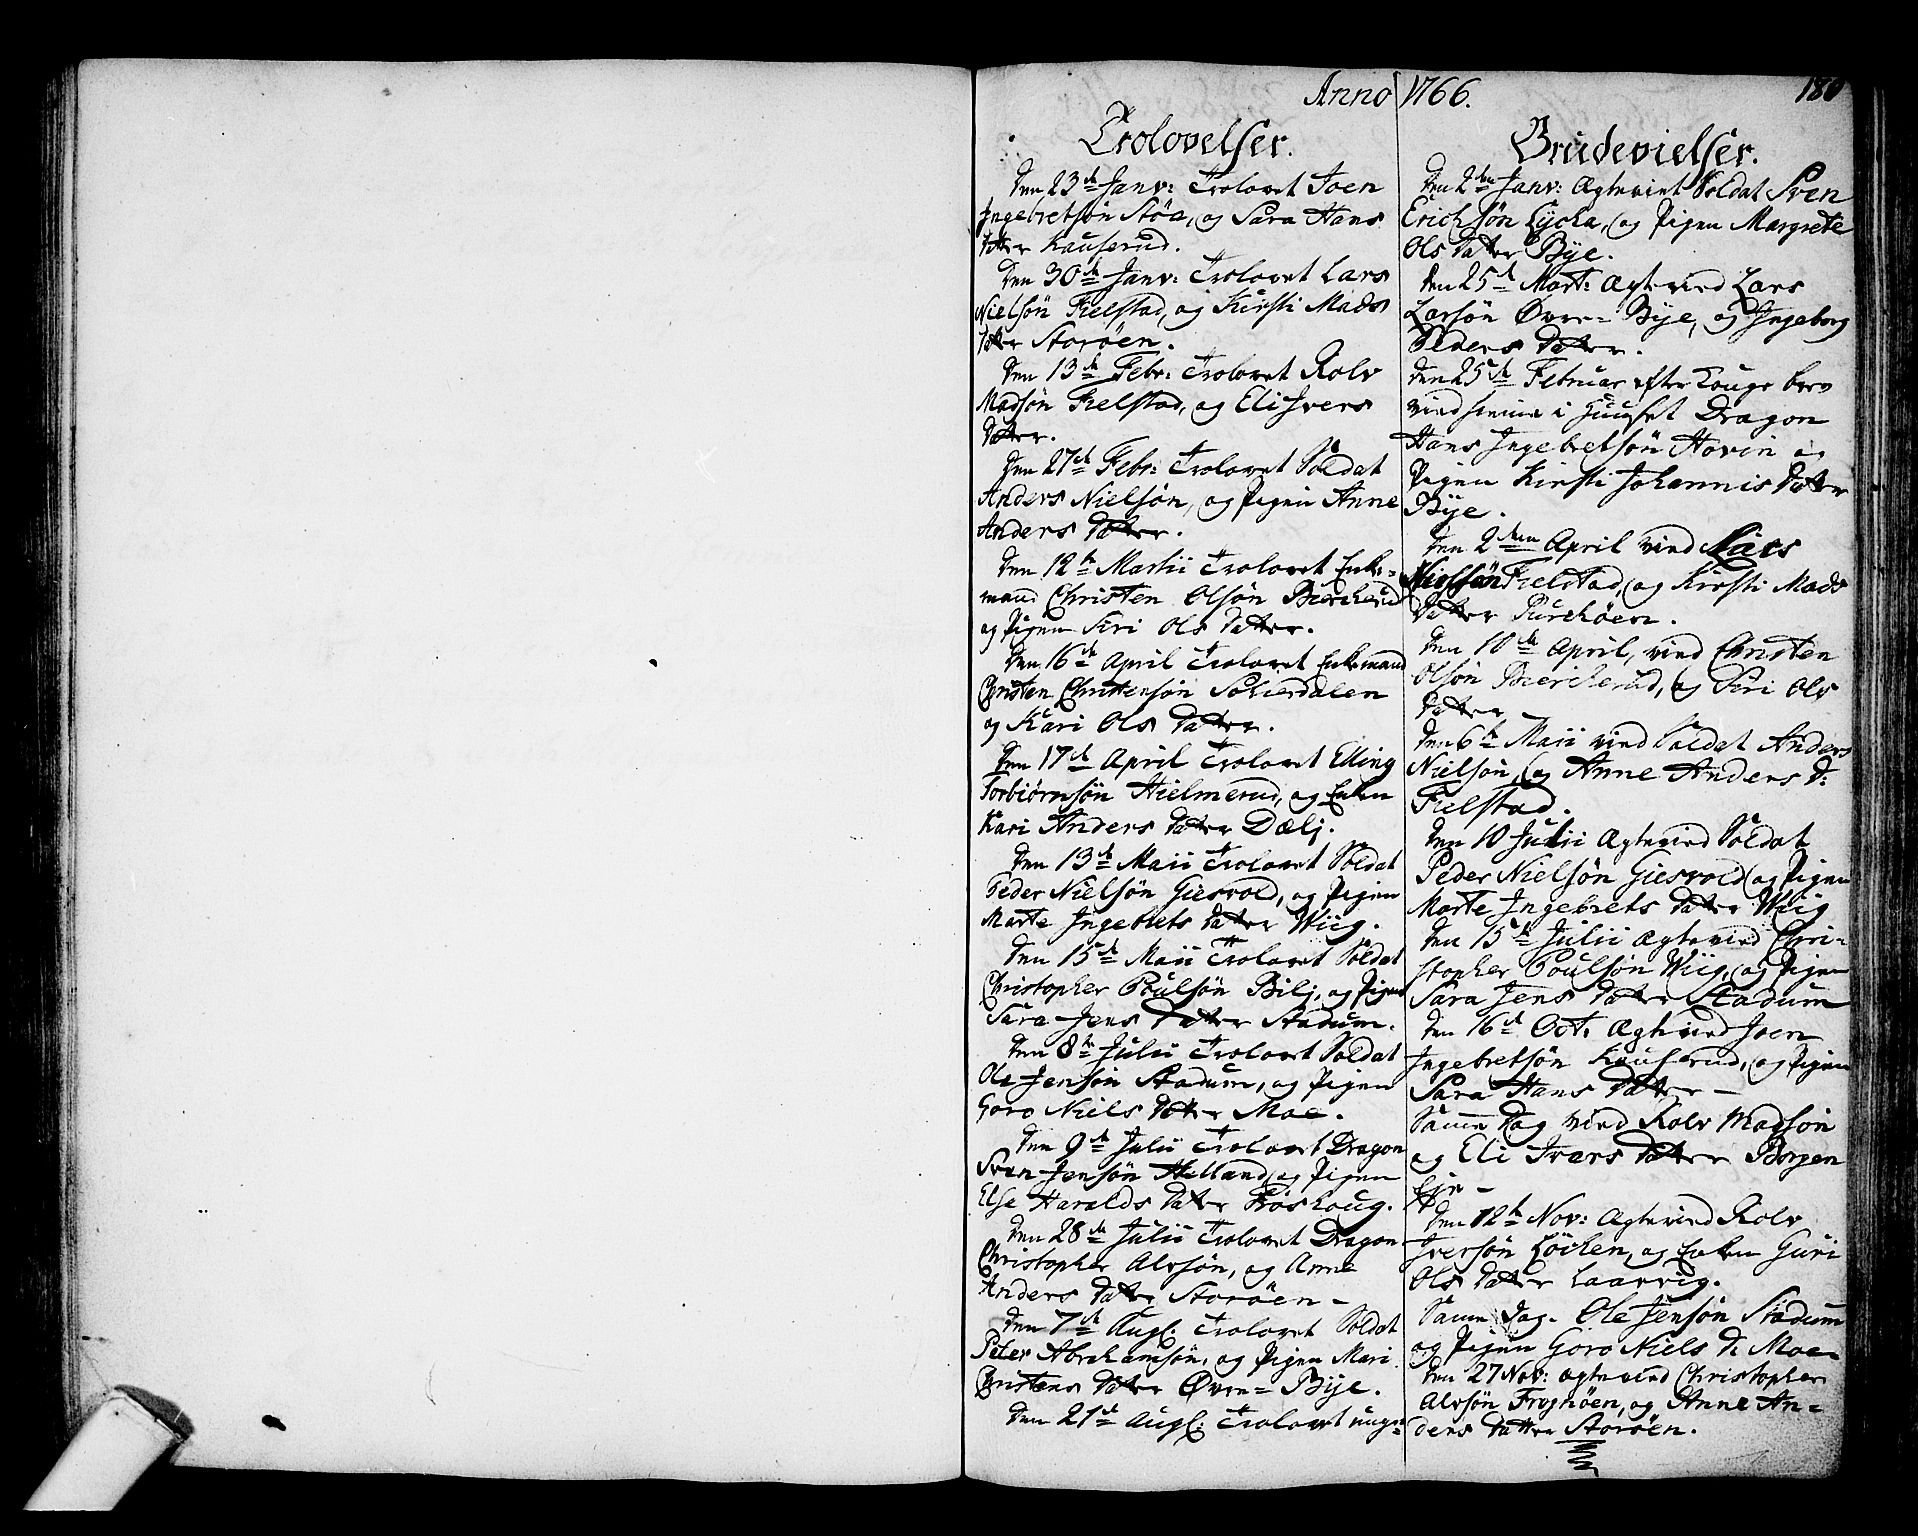 Anno 1766.
180
Trolovelser.
Den 23de Janv: Trolovet Joen
Ingebretsøn Støa, og Sara Hans
datter Kauserud.
Den 30de Janv: Trolovet Lars
Nielsøn Fielstad, og Kirsti Mads
datter Storøen.
Den 13de Febr: Trolovet Rolv
Madsøn Fielstad, og Eli Ivers
datter.
Den 27de Febr: Trolovet Soldat
Anders Nielsøn, og Pigen Anne
Anders datter.
Den 12te Martii Trolovet Enke-
mand Christen Olsøn Bierkerud
og Pigen Siri Ols datter.
Den 16de April Trolovet Enkemand
Christen Christensøn Sokierdalen
og Kari Ols datter.
Den 17de April Trolovet Elling
Torbiørnsøn Hielmerud, og Enken
Kari Anders datter Dælj.
Den 13de Maii Trolovet Soldat
Peder Nielsøn Giesvold, og Pigen
Marte Ingebrets datter Wiig.
Den 15de Maii Trolovet Soldat
Christopher Poulsøn Bilj, og Pigen
Sara Jens datter Stadum.
Den 8de Julii Trolovet Soldat
Ole Jensøn Stadum, og Pigen
Goro Niels datter Moe.
Den 9de Julii Trolovet Dragon
Sven Jensøn Helland, og Pigen
Else Haralds datter Frøshoug.
Den 28de Julii Trolovet Dragon
Christopher Alvsøn, og Anne
Anders datter Storøen -
Den 7de Augl: Trolovet Soldat
Peter Abrahamsøn, og Pigen Mari
Christens datter Øvre= Bye.
Den 21de Augl: Trolovet unge=
Brudevielser.
Den 2den Janv: Ægteviet Soldat Sven
Erichsøn Lycka, og Pigen Margrete
Ols datter Bye.
Den 25de Mart: Ægtevied Lars
Larsøn Øvre= Bye, og Ingeborg
Peders datter.
Den 25de Februar efter Konge brev
vied hiemme i Huuset Dragon
Hans Ingebretsøn Hovin og
Pigen Kirsti Johannis datter
Bye.
Den 2den April vied Lars
Nielsøn Fielstad, og Kirsti Mads
datter Purkøen.
Den 10de April, vied Christen
Olsøn Bierkerud, og Siri Ols
datter
Den 6te Maii vied Soldat Anders
Nielsøn, og Anne Anders d:
Fielstad.
Den 10 Julii Ægtevied Soldat
Peder Nielsøn Giesvold og Pigen
Marte Ingebrets datter Wiig
Den 15de Julii Ægtevied Chri=
stopher Poulsøn Wiig, og Pigen
Sara Jens datter Stadum
Den 16de Oct: Ægtevied Joen
Ingebretsøn Kauserud, og Pigen
Sara Hans datter -
Samme Dag vied Rolv Madsøn
og Eli Ivers datter Borgen
Eje -
Den 12te Nov: Ægtevied Rolv
Iversøn Løcken, og Enken Guri
Ols datter Laarvig.
Samme Dag. Ole Jensøn Stadum
og Pigen Goro Niels d: Moe
Den 27 Nov: Ægtevied Christopher
Alvsøn Frognøen, og Anne An=
ders datter Storøen.